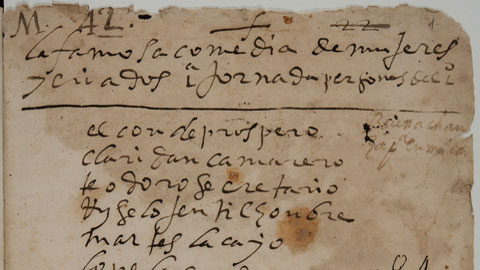 M. 42.-
la famosa comedia de mujeres
y criados 1ª Jornada personas del 1º
el conde prospero
claridan camarero
teodoro secretario
jentilhonbre
martes lacayo
lope